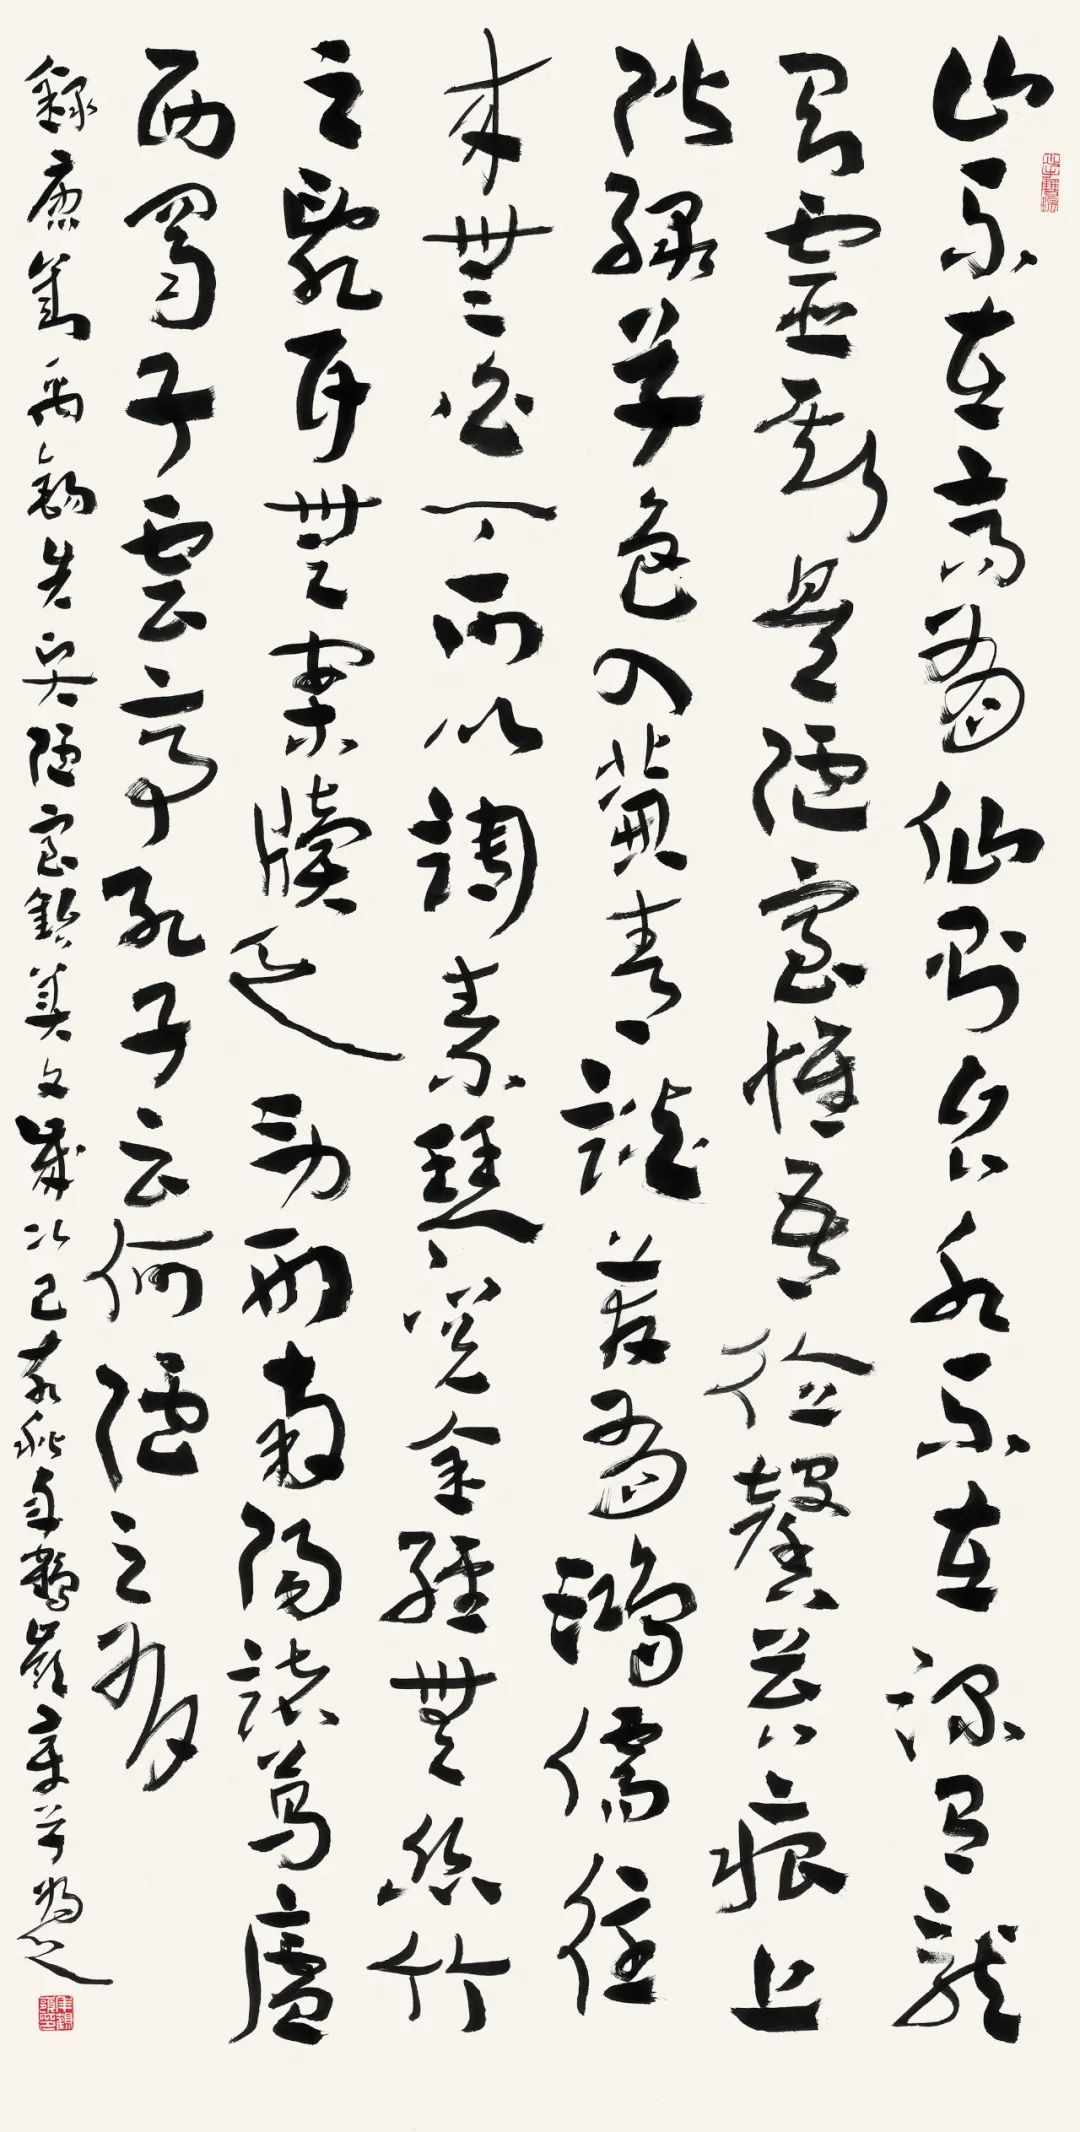 山不在高有仙則名水不在深有龍
則靈斯是陋室惟吾德馨苔痕上
階綠草色入簾青談笑有鴻儒往
來無白丁可以調素琴閱金經無絲竹
之亂耳無案牘之勞形南陽諸葛廬
西蜀子雲亭孔子云何陋之有
錄唐劉禹錫先賢陋室銘美文歲次己亥秋月鶴嶺